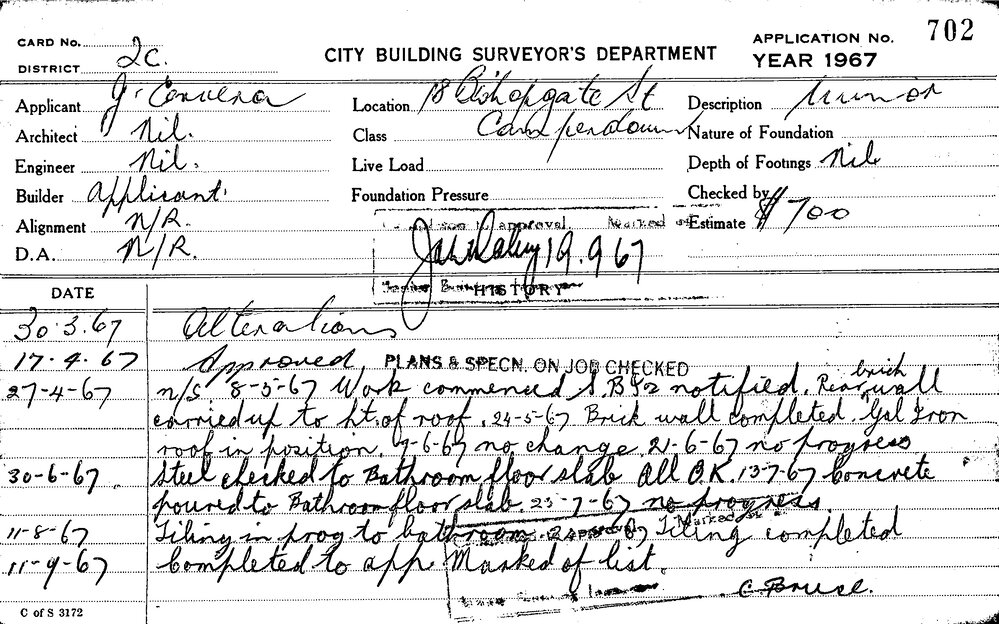 CARD No. 2c.
DISTRICT
CITY BUILDING SURVEYOR'S DEPARTMENT
APPLICATION No. 702
YEAR 1967
Applicant J.
Location 18 Bishopgate St
Description Minor
Architect Nil.
Class Camperdown
Nature of Foundation
Engineer Nil.
Live Load
Depth of Footings Nil
Builder Applicant.
Foundation Pressure
Checked by
Alignment N/R.
approval. Marked
Estimate $700
D.A. N/R.
19.9.67
HISTORY
DATE
30.3.67 Alterations
17-4.67 Approved, PLANS & SPECN. ON JOB CHECKED
27-4-67 n/s. 8-5-67 Work commenced notified. Rear brick wall
carried up to ht. of roof. 24-5-67 Brick wall completed. Gal Iron
roof in position. 9-6-67 no change. 21-6-67 no progress
30-6-67 Steel checked to Bathroom floor slab All O.K. 13-7-67 Concrete
poured to Bathroom floor slab. 25-7-67 no progress.
11-8-67 Tiling in prog to bathroom. Tiling completed
11-9-67 Completed to app. Marked of list.
C of S 3172